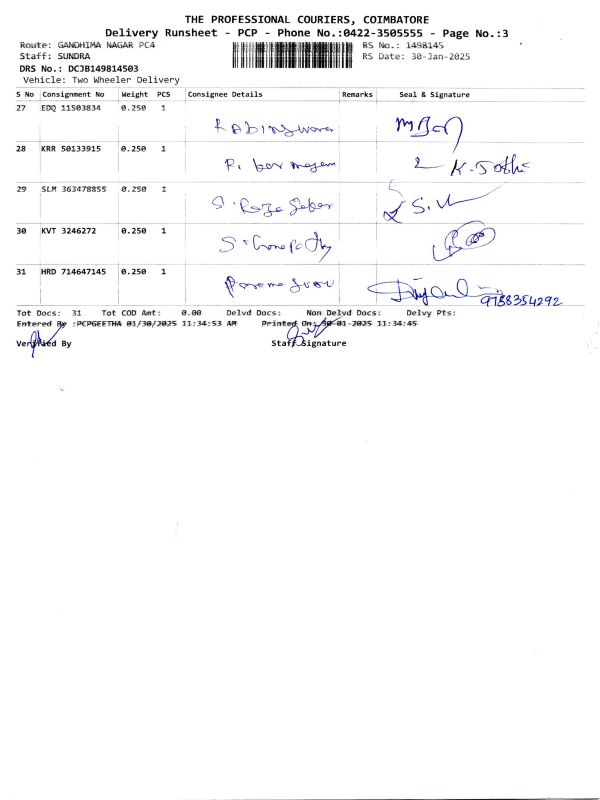 THE PROFESSIONAL COURIERS, COIMBATORE
Delivery Runsheet - PCP - Phone No.:0422-3505555 - Page No.:3
Route: GANDHIMA NAGAR PC4 RS No.: 1498145
Staff: SUNDRA RS Date: 30-Jan-2025
DRS No.: DCJB149814503
Vehicle: Two Wheeler Delivery
S No Consignment No Weight PCS Consignee Details Remarks Seal & Signature
27 EDQ 11503834 0.250 1
28 KRR 50133915 0.250 1
K. Jothi
29 SLM 363478855 0.250 1
30 KVT 3246272 0.250 1
31 HRD 714647145 0.250 1
9788354292
Tot Docs: 31 Tot COD Amt: 0.00 Delvd Docs: Non Delvd Docs: Delvy Pts:
Entered By :PCPGEETHA 01/30/2025 11:34:53 AM Printed On: 30-01-2025 11:34:45
Verified By Staff Signature